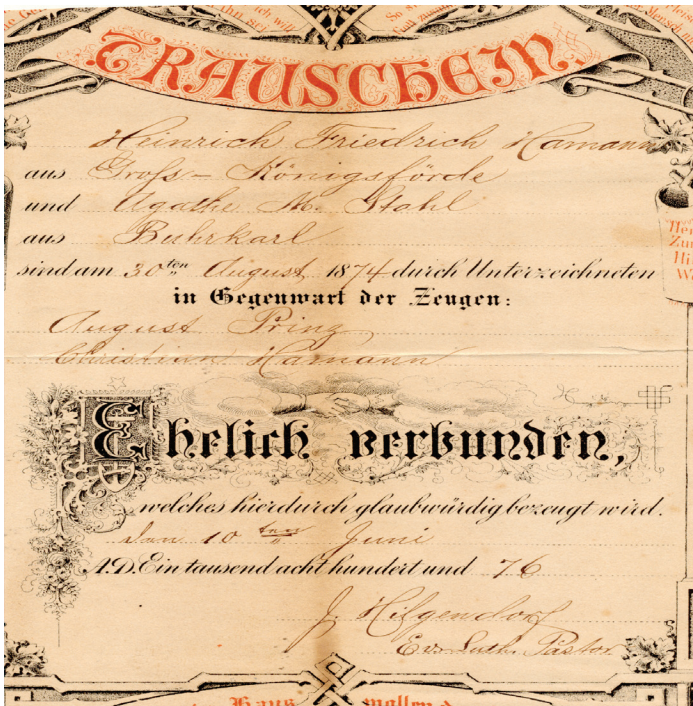 ich will
So
TRAUSCHEIN.
Heinrich Friedrich Hamann
aus Gross-Königsförde
und Agathe M. Stahl
aus Buhrkarl
sind am 30ten August 1874 durch Unterzeichneten
in Gegenwart der Zeugen:
August Prinz
Christian Hamann
Ehelich verbunden,
welches hierdurch glaubwürdig bezeugt wird.
den 10ten Juni
A.D. Ein tausend acht hundert und 76
J. Hilgendorf
Ev. Luth. Pastor
Haus wollen